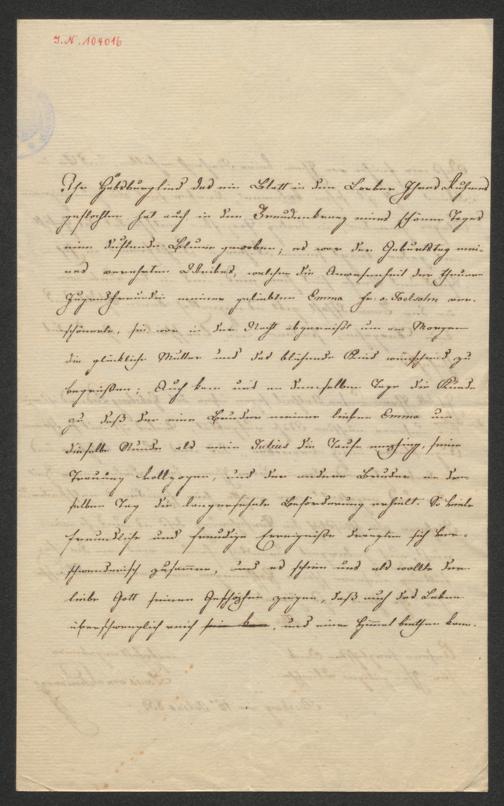 J.N. 104016
Ihr Habsburglied das ein Blatt in den Lorber Ihres Ruhmes
geflochten hat auch in den Freudenkranz eines schönen Tages
eine duftende Blume gewoben; es war der Geburtstag mei-
nes verehrten Weibes, welchen die Anwesenheit der theuren
Jugendfreundin meiner geliebten Emma Fr. v. ver-
schönerte, sie war in der Nacht abgereist um am Morgen
die glückliche Mutter und das blühende Kind wünschend zu
begrüßen; Auch kam uns an demselben Tage die Kunde
zu daß der eine Bruder meiner lieben Emma um
dieselbe Stunde als mein Julius die Taufe empfing, seine
Trauung vollzogen, und der andere Bruder an dem-
selben Tag die langersehnte Beförderung erhielt. So viele
freundliche und freudige Ereignisse drängten sich ver-
schwenderisch zusammen, und es schien uns als wollte der
liebe Gott seinen Geschöpfen zeigen, daß auch das Leben
überschwenglich reich, und einen Himmel biethen kann.